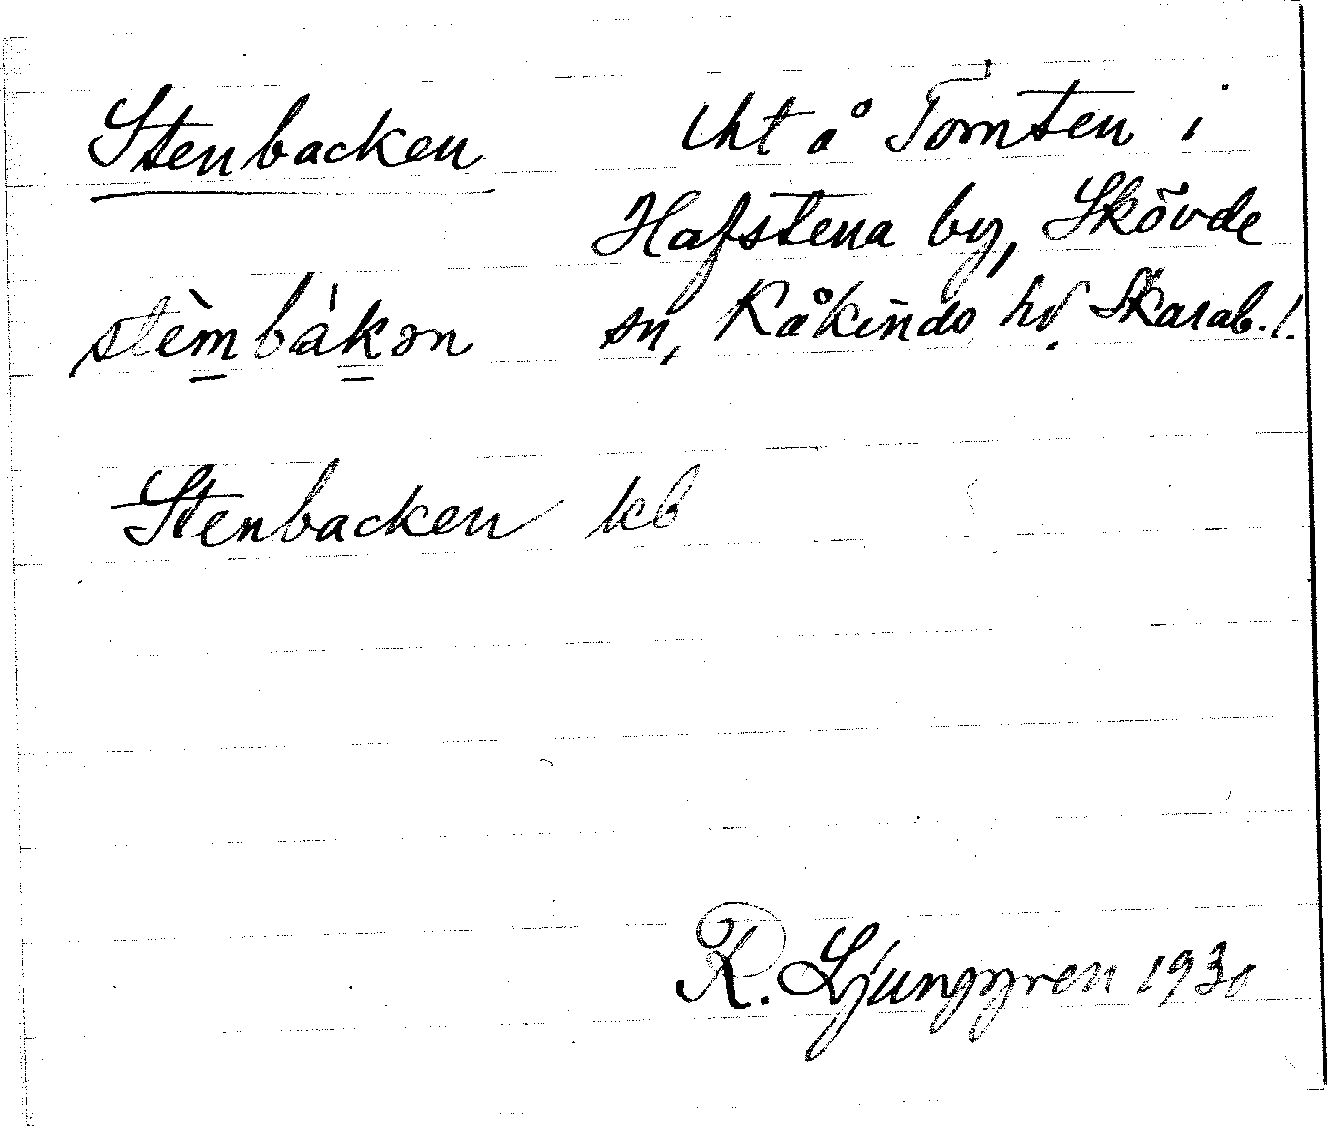 Stenbacken Lht å Tomten i
Hafstena by, Skövde
stèmbákən sn, Kåkinds hd. Skarab. l.
Stenbacken kb
R. Ljunggren 1930